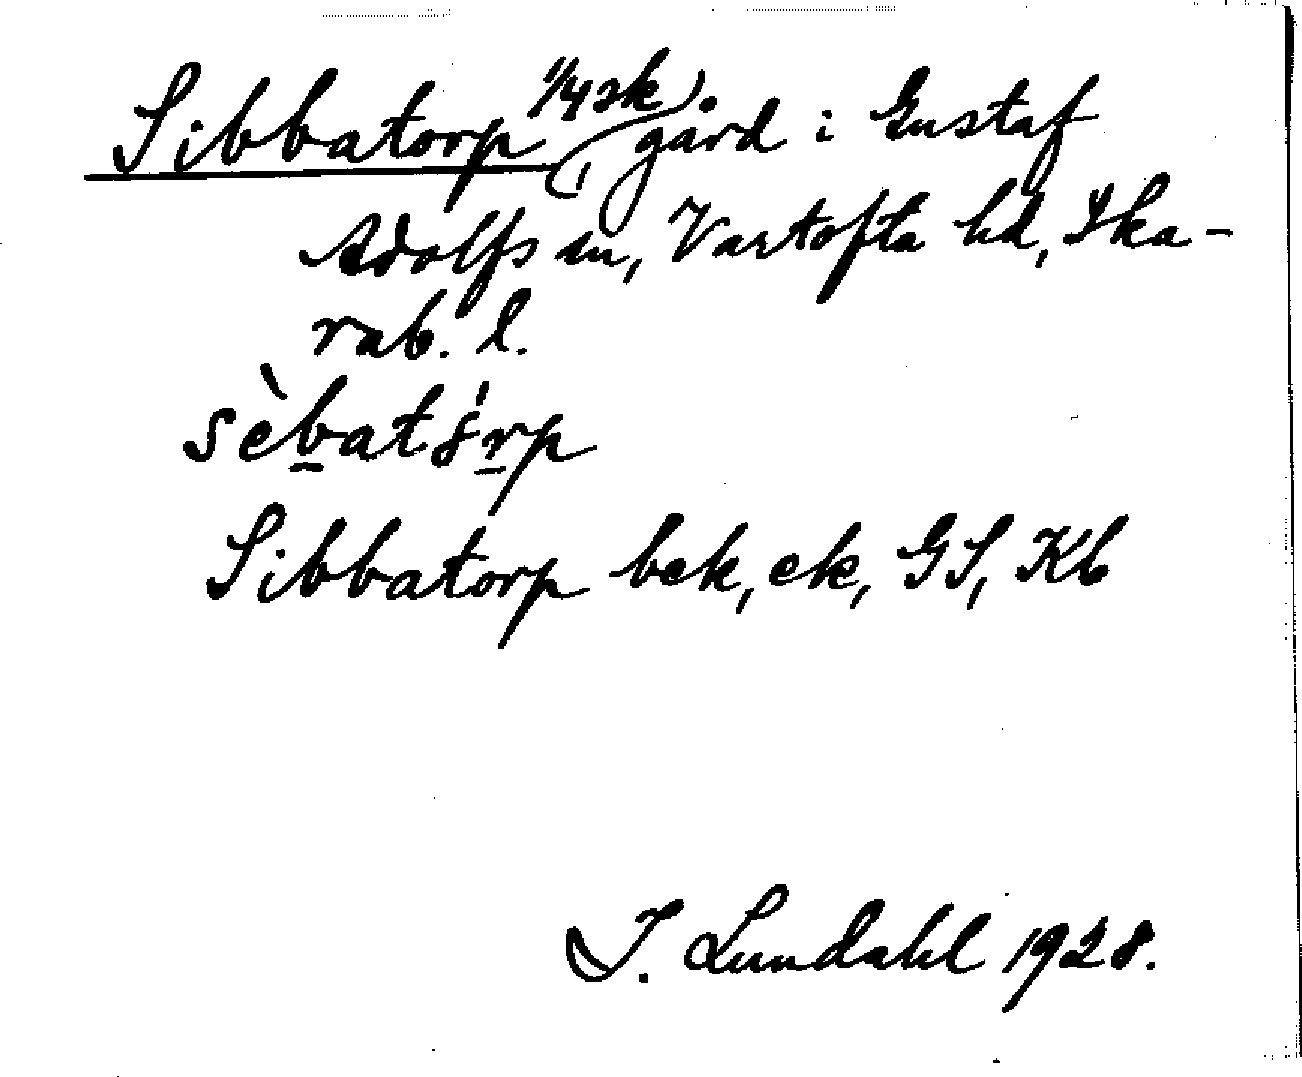 Sibbatorp 1/4 sk). gård i Gustaf
Adolfs sn, Vartofta hd, Ska-
rab. l.
sèbatórp
Sibbatorp bek, ek, GS, Kb
I. Lundahl 1928.